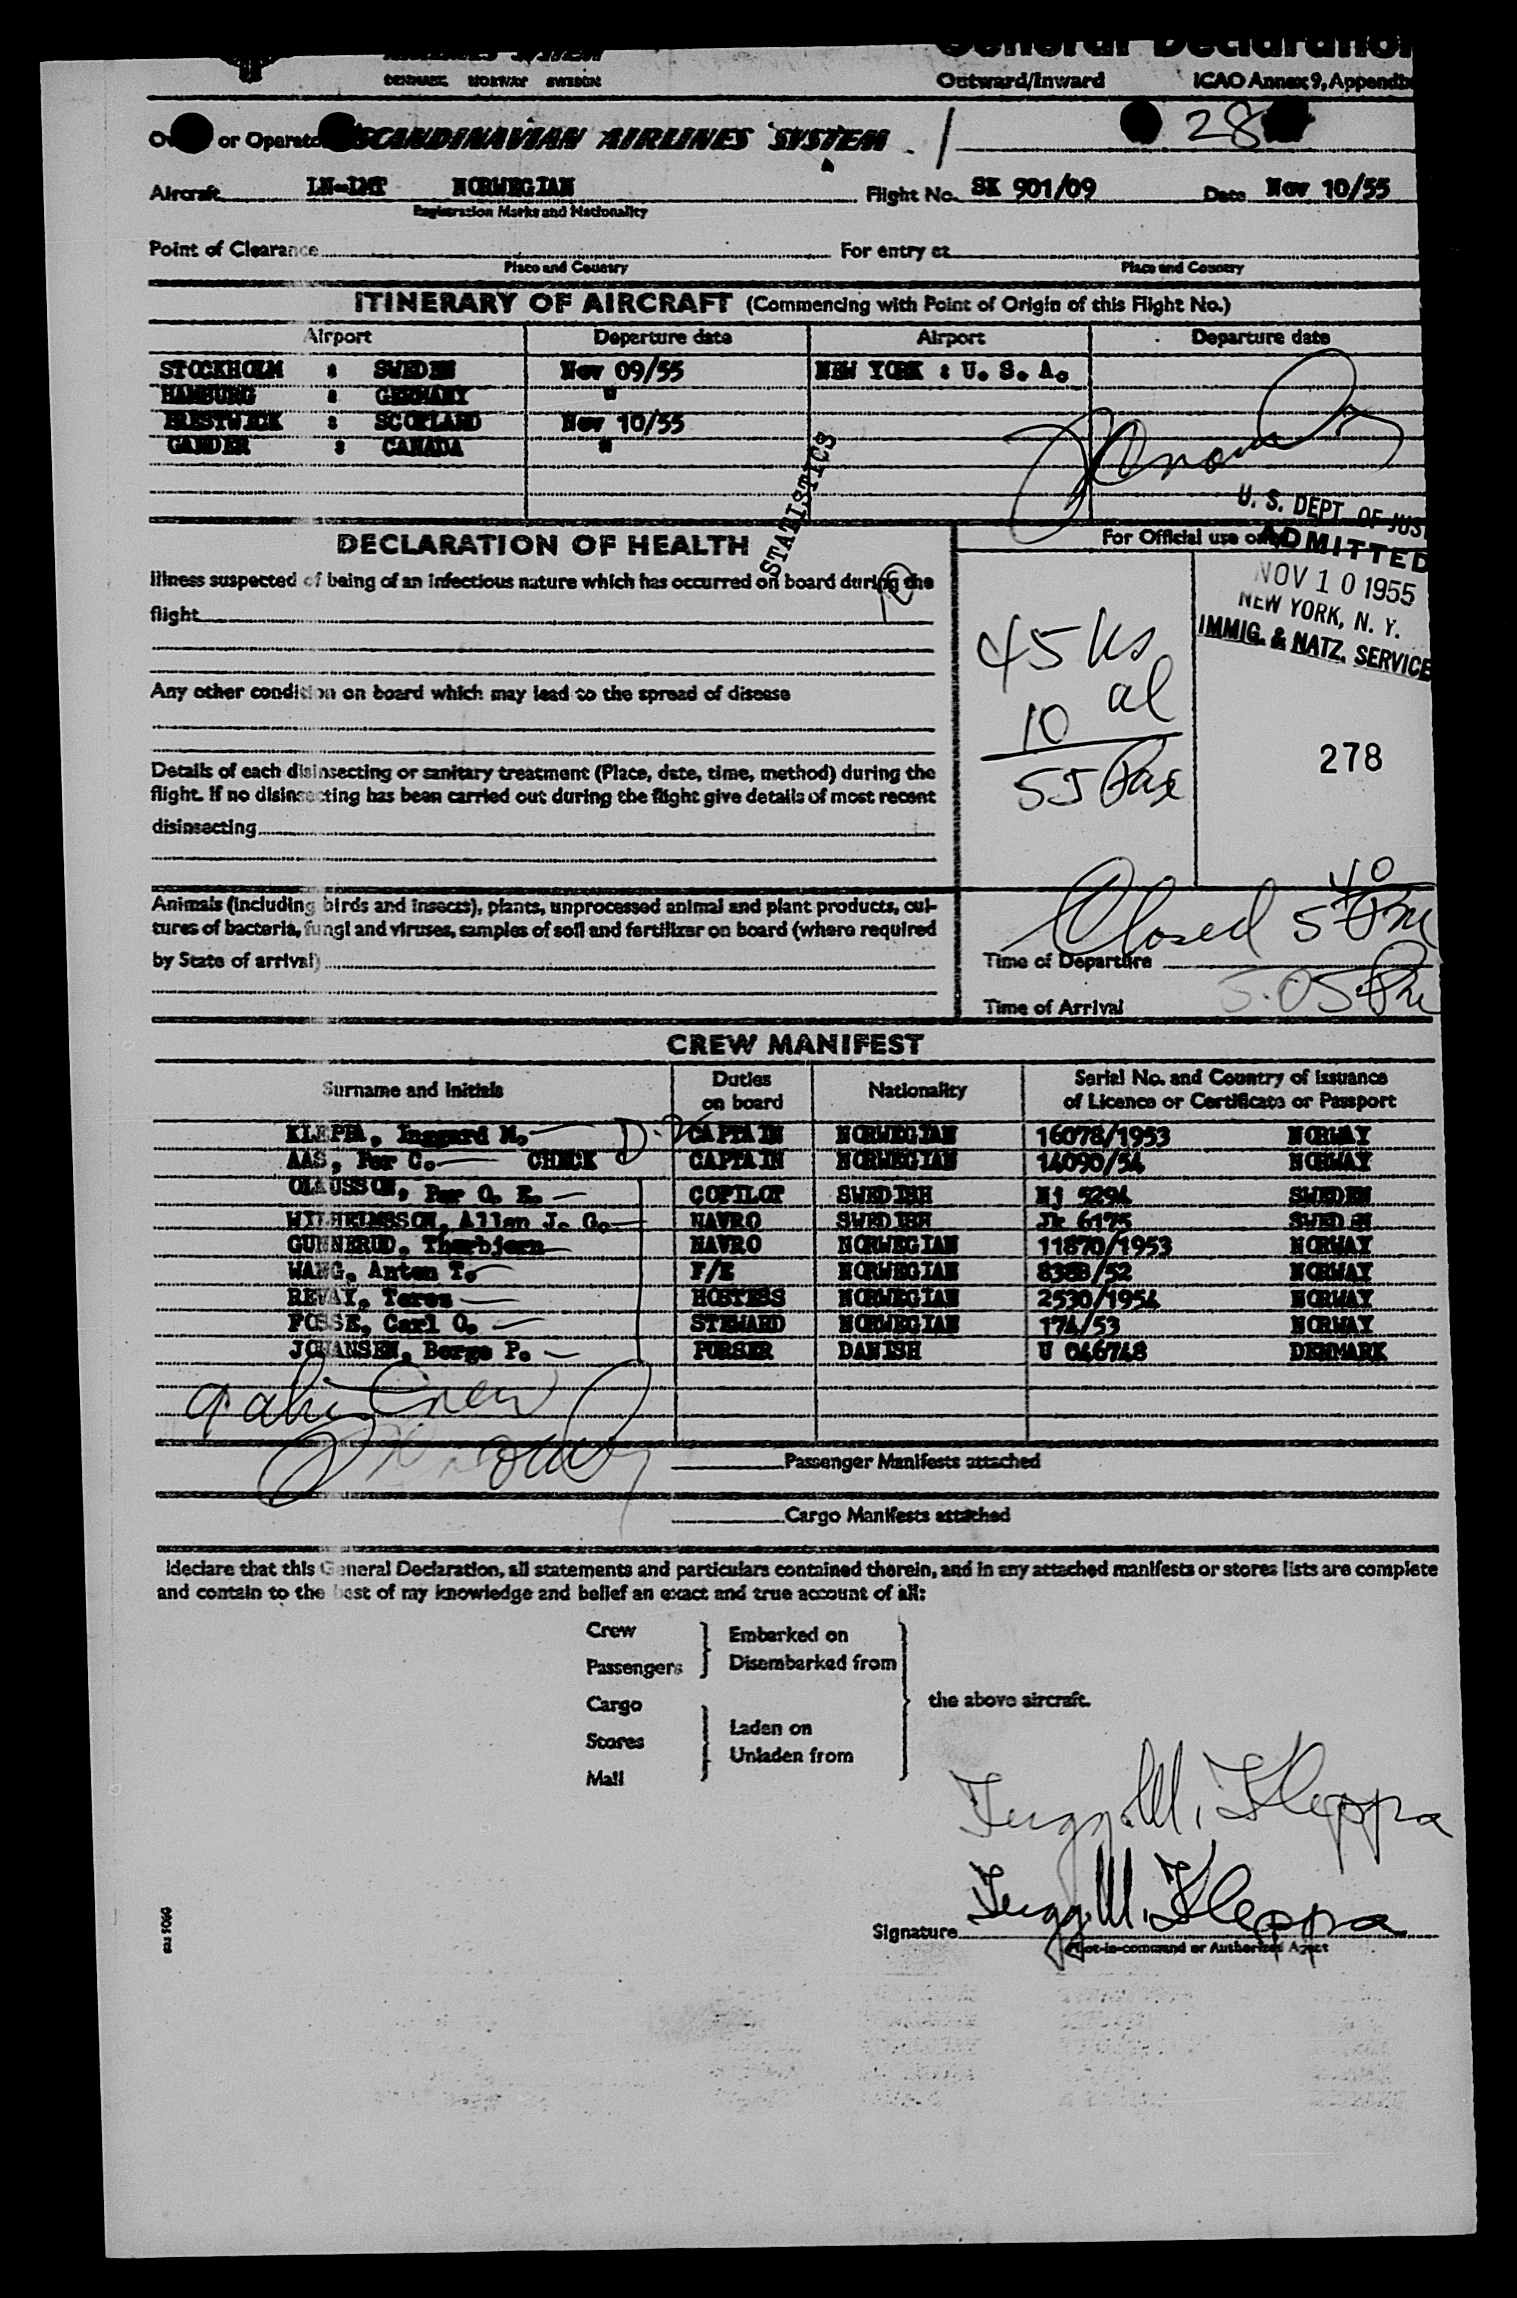 DENMARK NORWAY SWEDEN
General Declaration
Outward/Inward ICAO Annex 9, Appendix
or Operator SCANDINAVIAN AIRLINES SYSTEM 28
Aircraft LN-LMT NORWEGIAN Flight No. SK 901/09 Date Nov 10/55
Registration Marks and Nationality
Point of Clearance For entry at
Place and Country Place and Country
ITINERARY OF AIRCRAFT (Commencing with Point of Origin of this Flight No.)
Airport Departure date Airport Departure date
STOCKHOLM : SWEDEN Nov 09/55 NEW YORK : U. S. A.
HAMBURG : GERMANY "
PRESTWICK : SCOTLAND Nov 10/55
GANDER : CANADA "
STATISTICS
U. S. DEPT. OF JUS
ADMITTED
NOV 10 1955
NEW YORK, N. Y.
IMMIG. & NATZ. SERVICE
278
DECLARATION OF HEALTH
For Official use only
Illness suspected of being of an infectious nature which has occurred on board during the
flight
Any other condition on board which may lead to the spread of disease
Details of each disinsecting or sanitary treatment (Place, date, time, method) during the
flight. If no disinsecting has been carried out during the flight give details of most recent
disinsecting
45 us
10 al
55 Pax
Animals (including birds and insects), plants, unprocessed animal and plant products, cul-
tures of bacteria, fungi and viruses, samples of soil and fertilizer on board (where required
by State of arrival)
Closed 5 40 PM
Time of Departure
Time of Arrival 5.05 PM
CREW MANIFEST
Surname and Initials Duties on board Nationality Serial No. and Country of Issuance of Licence or Certificate or Passport
KLEPPA, Inggard M. CAPTAIN NORWEGIAN 16078/1953 NORWAY
AAS, Per C. CHECK CAPTAIN NORWEGIAN 14090/54 NORWAY
OLAUSSON, Per O. E. COPILOT SWEDISH Nj 5294 SWEDEN
WILHELMSSON, Allan J. G. NAVRO SWEDISH Jk 6175 SWEDEN
GUNNERUD, Thorbjorn NAVRO NORWEGIAN 11870/1953 NORWAY
WANG, Anton T. F/E NORWEGIAN 8388/52 NORWAY
REVAY, Teres HOSTESS NORWEGIAN 2530/1954 NORWAY
FOSSE, Carl O. STEWARD NORWEGIAN 174/53 NORWAY
JOHANSEN, Borge P. PURSER DANISH U 046748 DENMARK
9 alien Crew
Passenger Manifests attached
Cargo Manifests attached
I declare that this General Declaration, all statements and particulars contained therein, and in any attached manifests or stores lists are complete
and contain to the best of my knowledge and belief an exact and true account of all:
Crew
Passengers
Embarked on
Disembarked from
Cargo
Stores
Mail
Laden on
Unladen from
the above aircraft.
Ingg. M. Kleppa
Ingg. M. Kleppa
Signature
Pilot-in-command or Authorized Agent